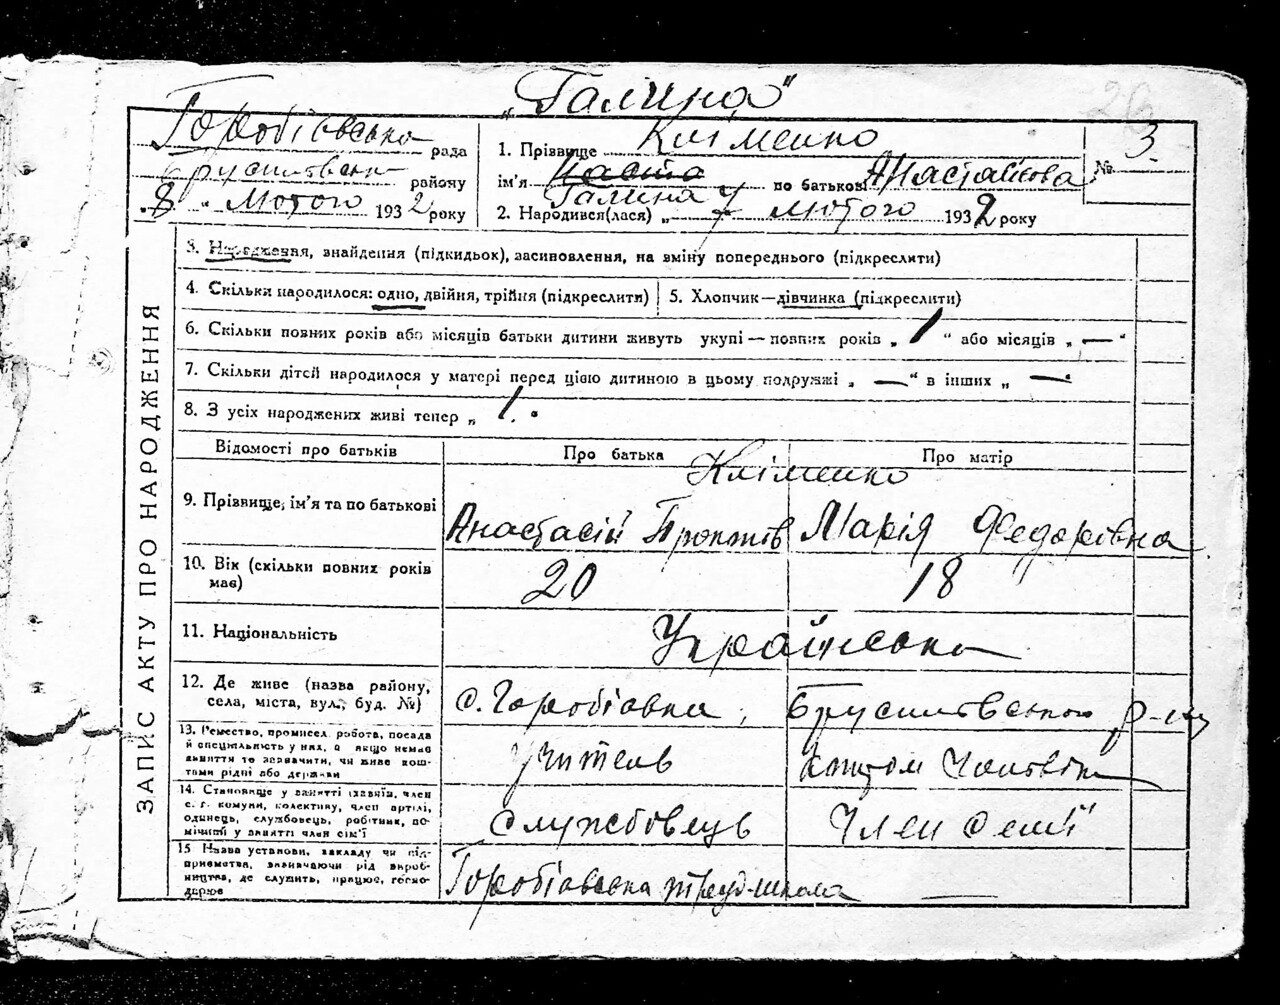 „Галина"
26
Горобіовська рада
Брусилівськ району
8 „ Лютого 1932 року
1. Прізвище Кліменко
ім'я Галина по батькові Анастаійова
2. Народився(лася) „ 7 лютого 1932 року
№ 3.
ЗАПИС АКТУ ПРО НАРОДЖЕННЯ
3. Народження, знайдення (підкидьок), засиновлення, на зміну попереднього (підкреслити)
4. Скільки народилося: одно, двійня, трійня (підкреслити) 5. Хлопчик—дівчинка (підкреслити)
6. Скільки повних років або місяців батьки дитини живуть укупі — повних років „ 1 " або місяців „ — "
7. Скільки дітей народилося у матері перед цією дитиною в цьому подружжі „ — " в інших „ — "
8. З усіх народжених живі тепер „ 1.
Відомості про батьків Про батька Про матір
Кліменко
9. Прізвище, ім'я та по батькові Анастасій Марія Федорівна
10. Вік (скільки повних років має) 20 18
11. Національність Українська
12. Де живе (назва району, села, міста, вул., буд. №) с. Горобіовка, Брусилівського р-ну
13. Ремество, промисел, робота, посада й специяльність у них, а якщо немає заняття то зазначити, чи живе коштами рідні або держави учитель
14. Становище у занятті (хазяїн, член с. г. комуни, колективу, член артілі, одинець, службовець, робітник, помічний у занятті член сім'ї службовець член семї
15 Назва установи, закладу чи підприємства, зазначаючи рід виробництва, де служить, працює, господарює Горобіовська труд-школа —